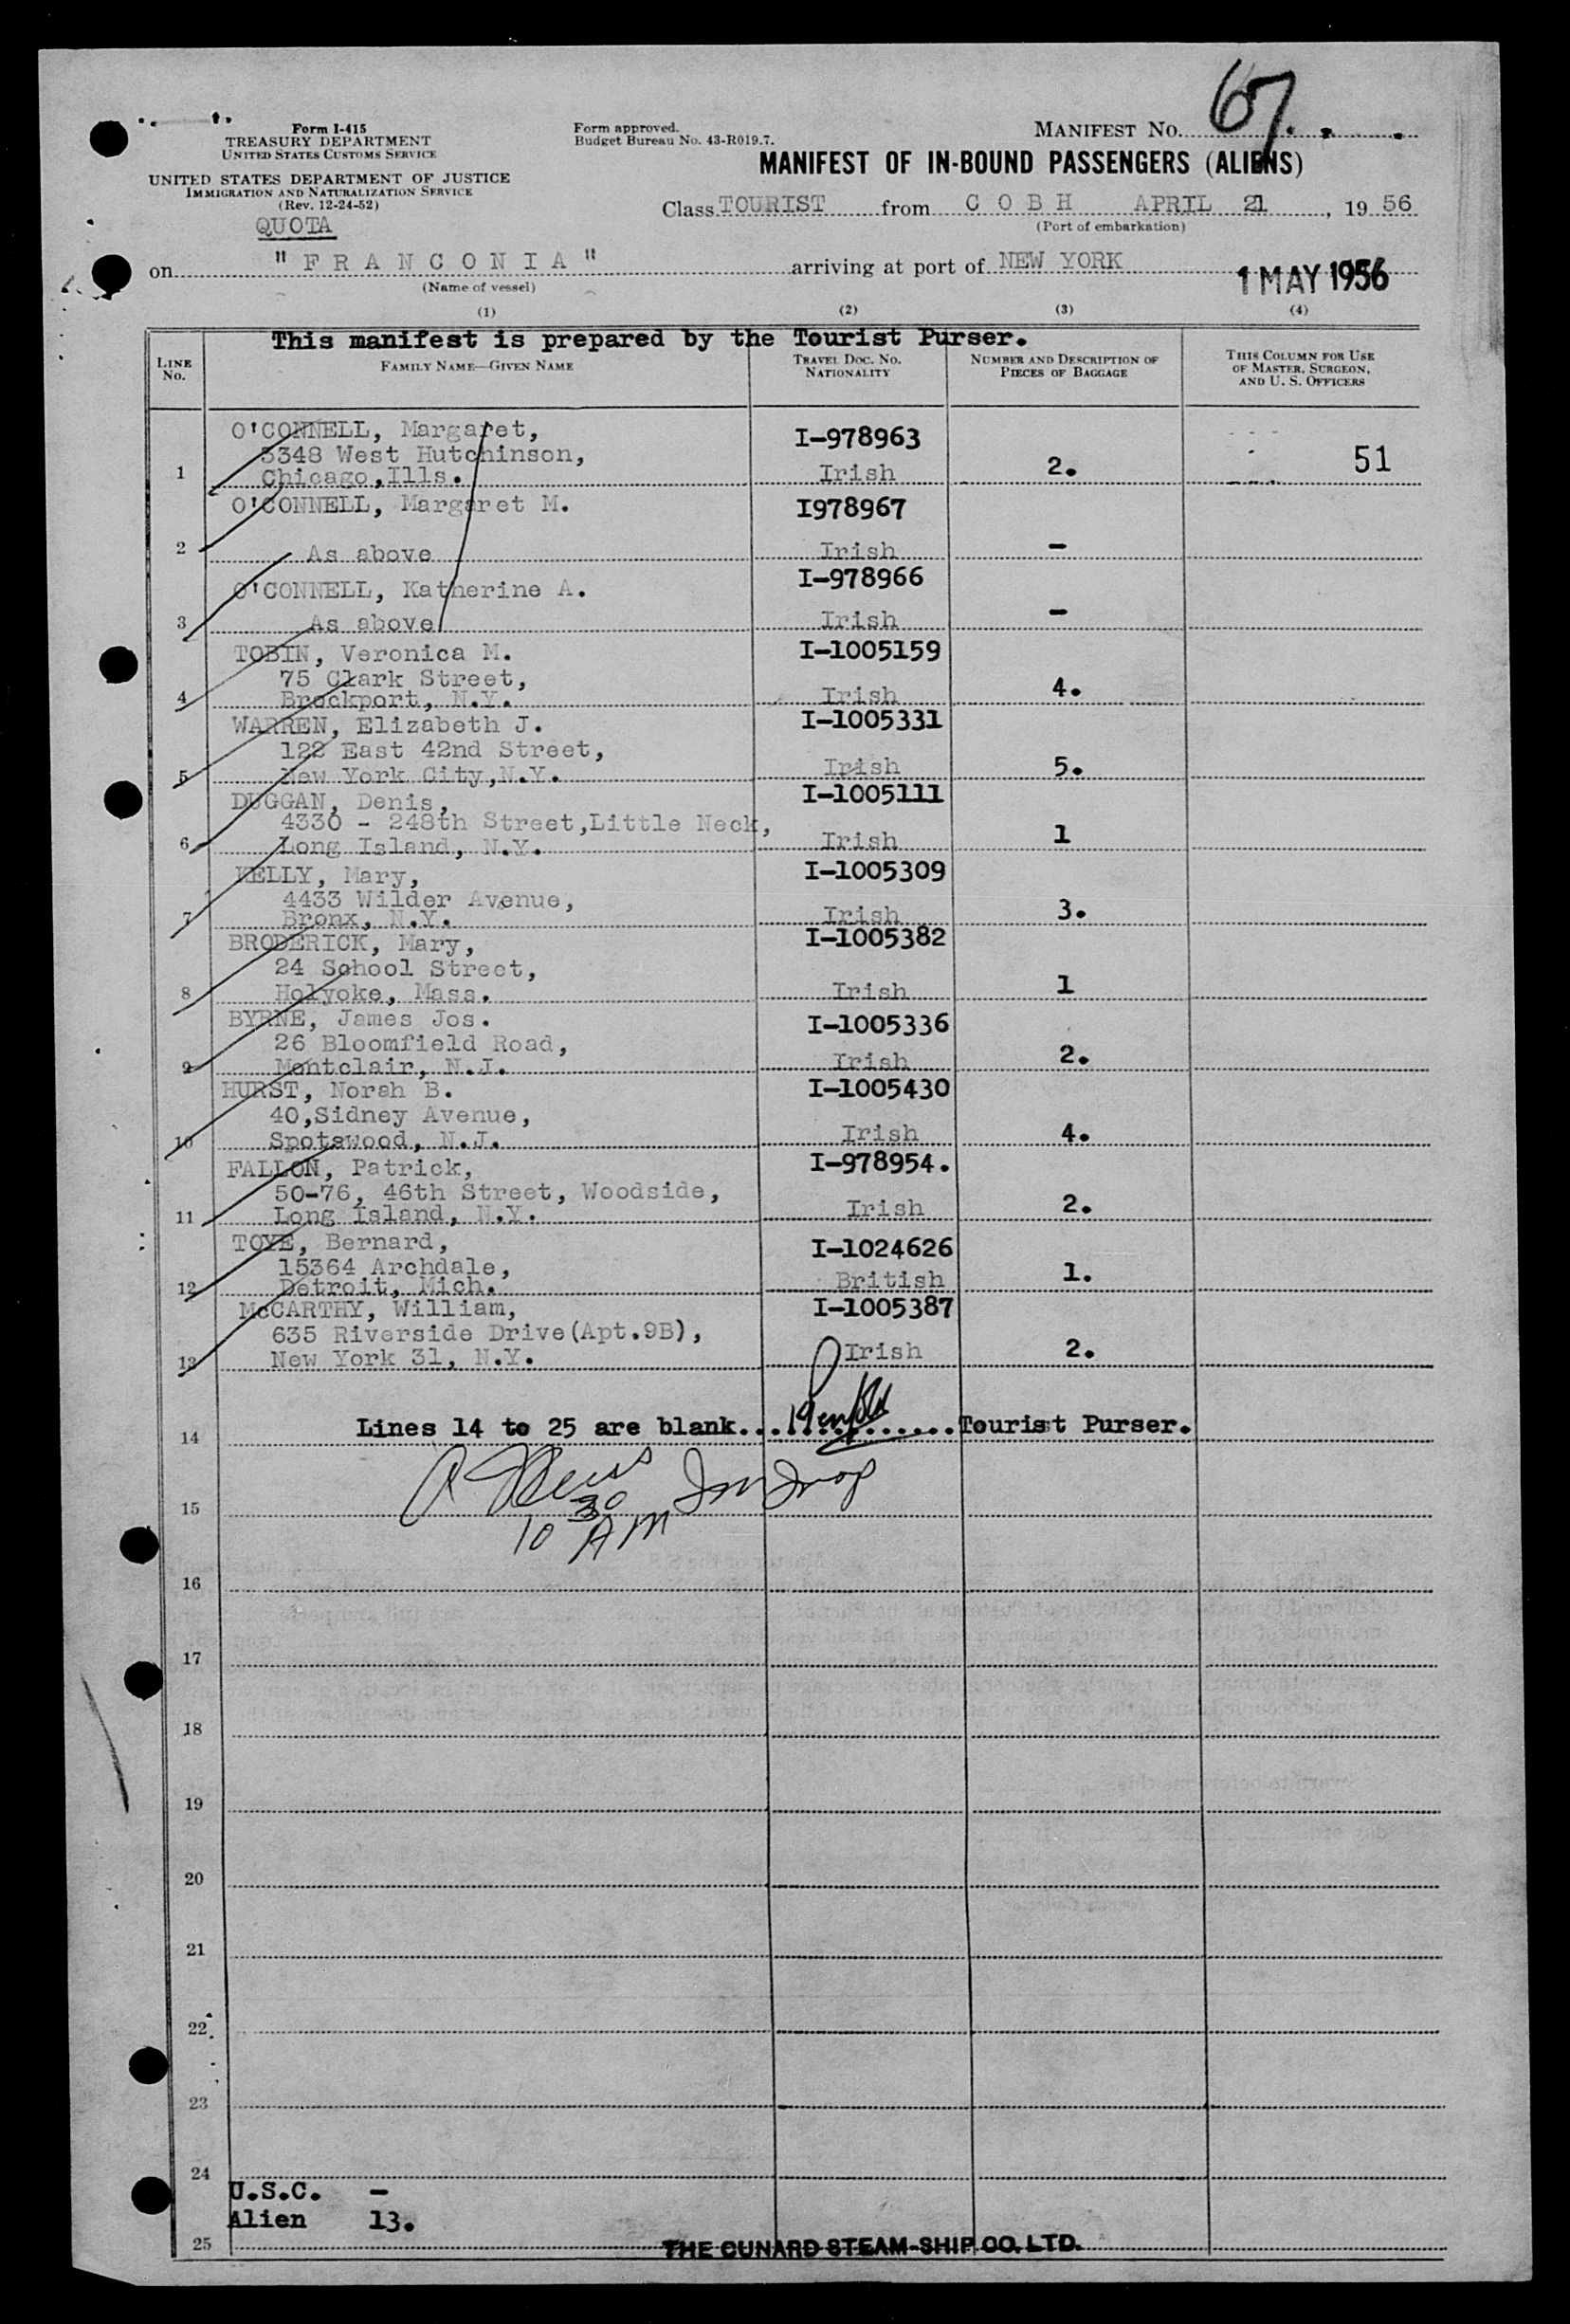 Form I-415
TREASURY DEPARTMENT
UNITED STATES CUSTOMS SERVICE
UNITED STATES DEPARTMENT OF JUSTICE
IMMIGRATION AND NATURALIZATION SERVICE
(Rev. 12-24-52)
QUOTA
Form approved.
Budget Bureau No. 43-R019.7.
MANIFEST NO. 67
MANIFEST OF IN-BOUND PASSENGERS (ALIENS)
Class TOURIST from C O B H APRIL 21, 19 56
(Port of embarkation)
on " F R A N C O N I A " arriving at port of NEW YORK 1 MAY 1956
(Name of vessel)
(1) (2) (3) (4)
This manifest is prepared by the Tourist Purser.
LINE NO. FAMILY NAME—GIVEN NAME TRAVEL DOC. NO. NATIONALITY NUMBER AND DESCRIPTION OF PIECES OF BAGGAGE THIS COLUMN FOR USE OF MASTER, SURGEON, AND U. S. OFFICERS
O'CONNELL, Margaret, I-978963
5348 West Hutchinson,
1 Chicago,Ills. Irish 2. 51
O'CONNELL, Margaret M. I978967
2 As above Irish -
O'CONNELL, Katherine A. I-978966
3 As above Irish -
TOBIN, Veronica M. I-1005159
75 Clark Street,
4 Brockport, N.Y. Irish 4.
WARREN, Elizabeth J. I-1005331
122 East 42nd Street,
5 New York City,N.Y. Irish 5.
DUGGAN, Denis, I-1005111
4330 - 248th Street,Little Neck,
6 Long Island, N.Y. Irish 1
KELLY, Mary, I-1005309
4433 Wilder Avenue,
7 Bronx, N.Y. Irish 3.
BRODERICK, Mary, I-1005382
24 School Street,
8 Holyoke, Mass. Irish 1
BYRNE, James Jos. I-1005336
26 Bloomfield Road,
9 Montclair, N.J. Irish 2.
HURST, Norah B. I-1005430
40,Sidney Avenue,
10 Spotswood, N.J. Irish 4.
FALLON, Patrick, I-978954.
50-76, 46th Street, Woodside,
11 Long Island, N.Y. Irish 2.
TOYE, Bernard, I-1024626
15364 Archdale,
12 Detroit, Mich. British 1.
McCARTHY, William, I-1005387
635 Riverside Drive(Apt.9B),
13 New York 31, N.Y. Irish 2.
14 Lines 14 to 25 are blank.... Tourist Purser.
15
10 30 AM
16
17
18
19
20
21
22
23
24
U.S.C. -
Alien 13.
25 THE CUNARD STEAM-SHIP CO. LTD.